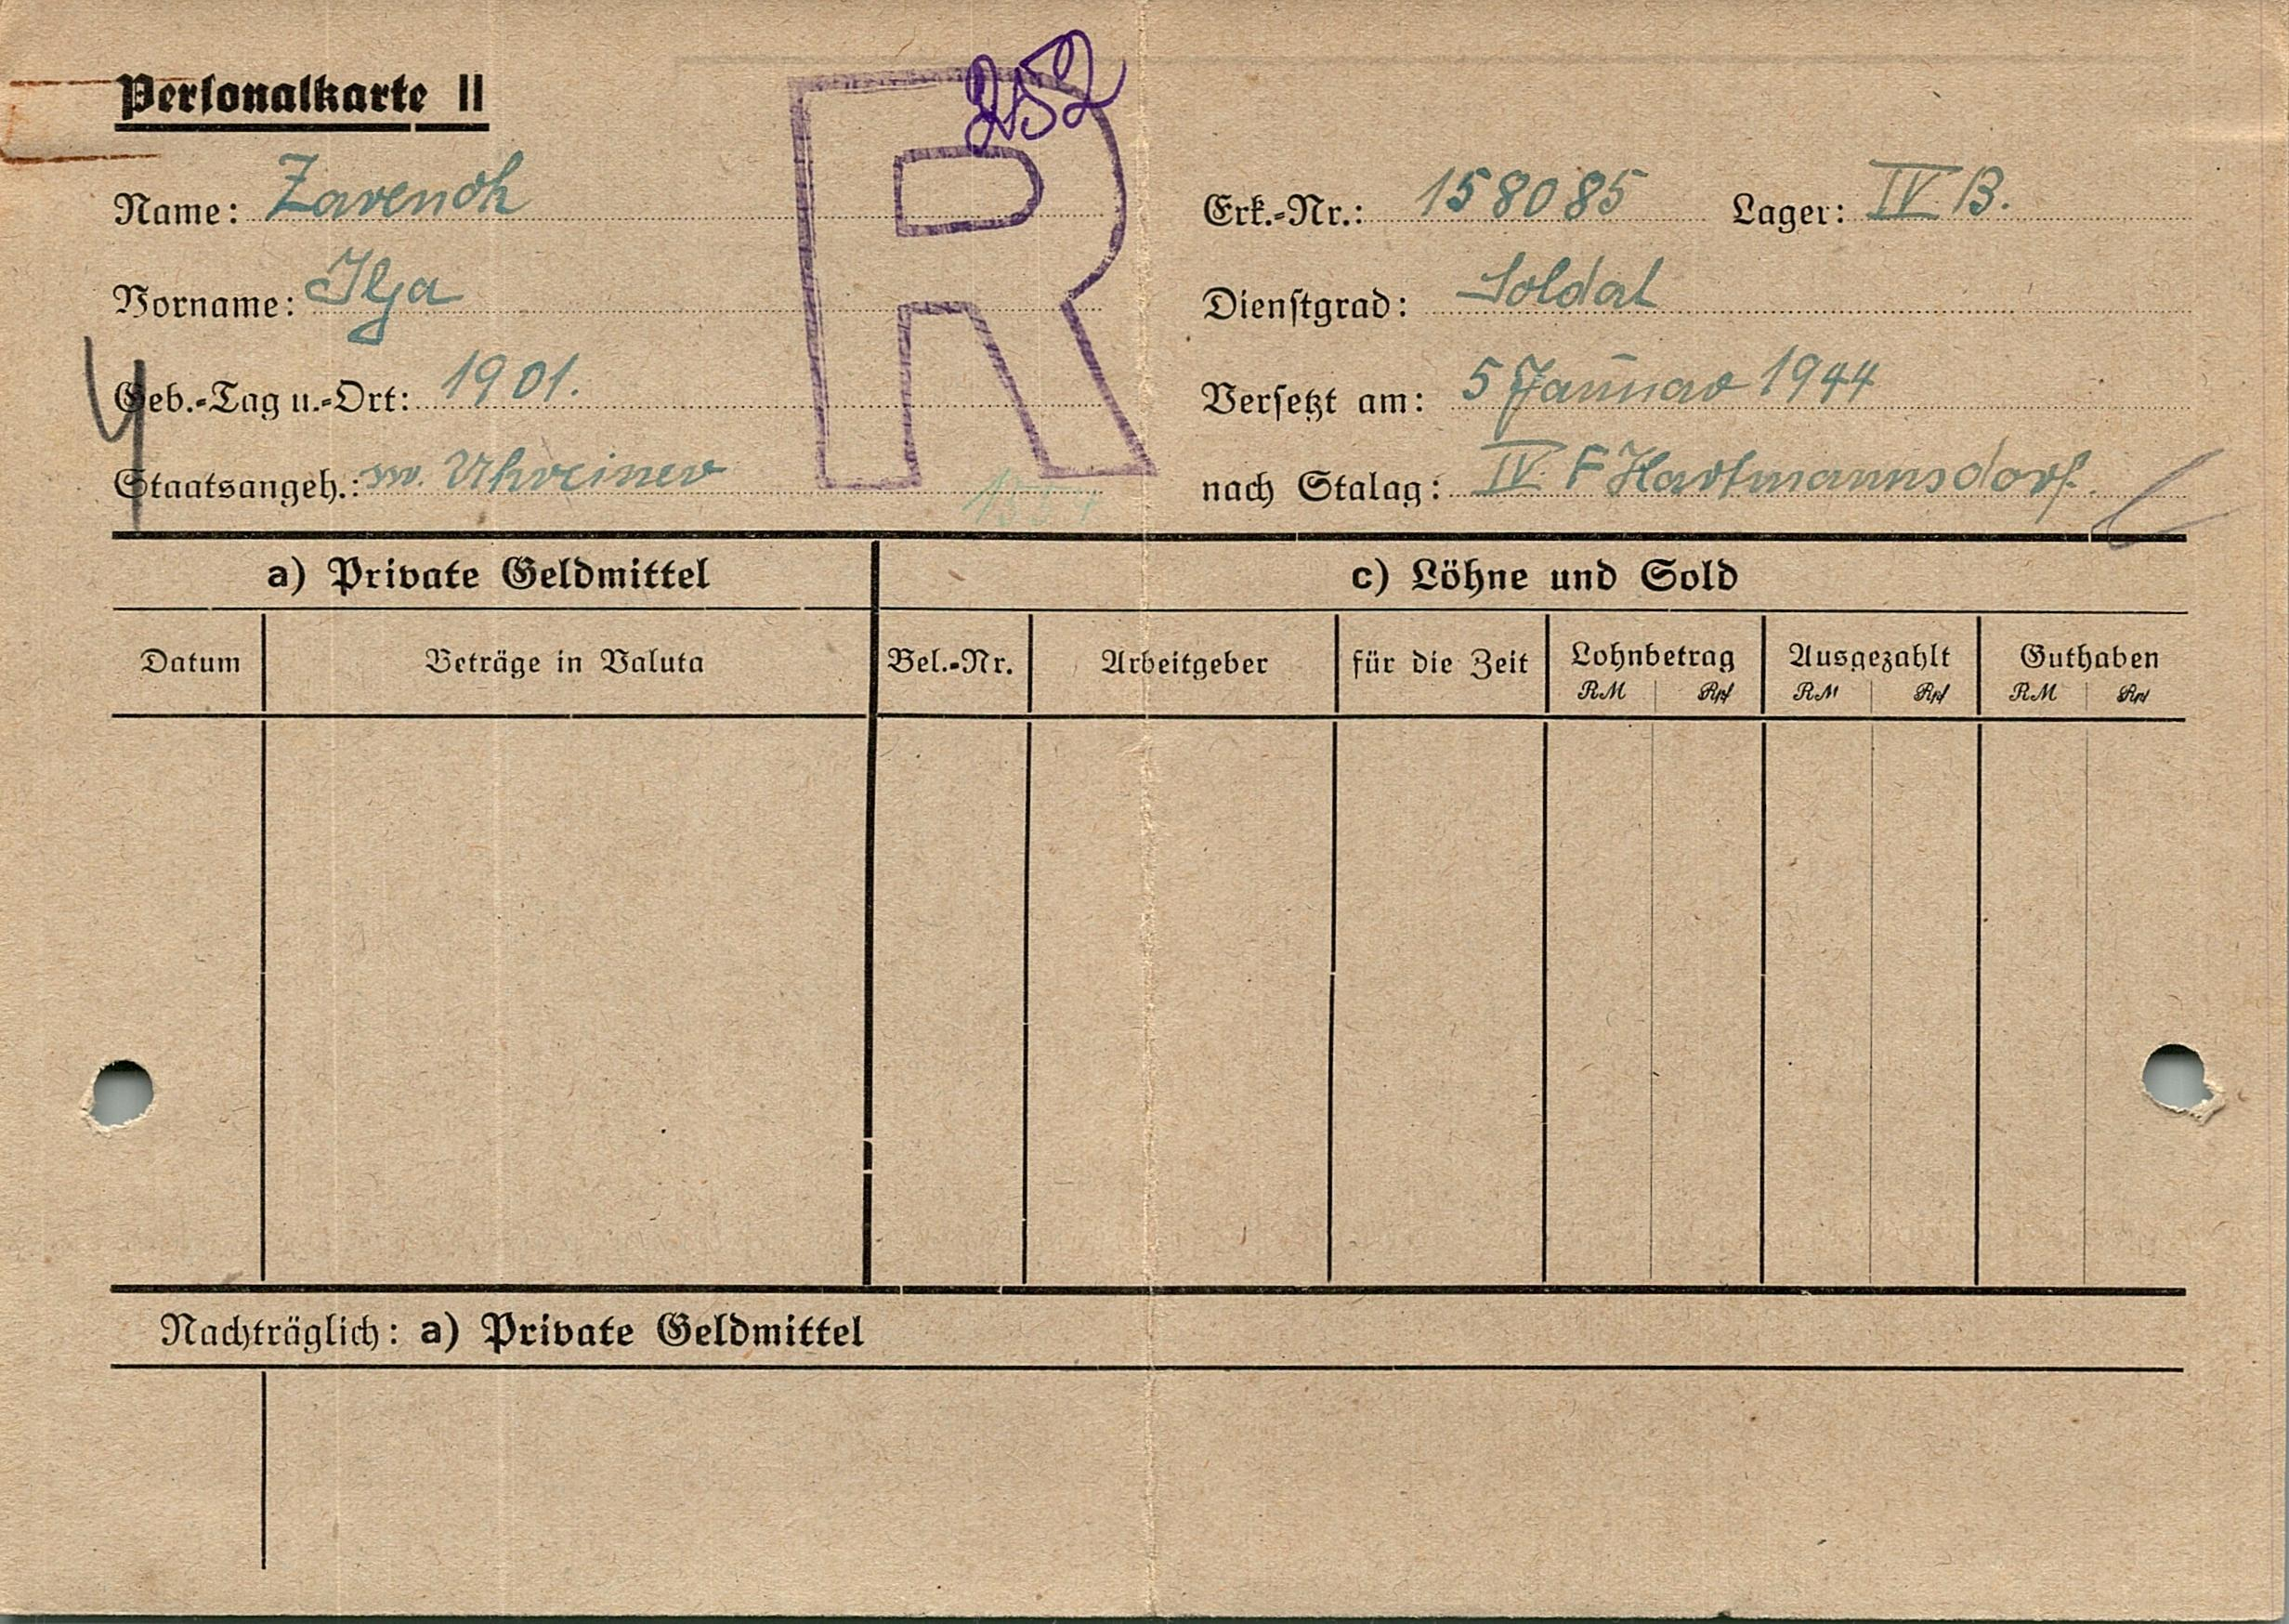 Personalkarte II
252
R
Name: Zavendk
Erk.-Nr.: 158085 Lager: IV B.
Vorname: Ilja
Dienstgrad: Soldat
Geb.-Tag u.-Ort: 1901.
Versetzt am: 5 Januar 1944
Staatsangeh.: Ukreiner
nach Stalag: IV F Hartmannsdorf.
a) Private Geldmittel
c) Löhne und Sold
Datum Beträge in Valuta Bel.-Nr. Arbeitgeber für die Zeit Lohnbetrag Ausgezahlt Guthaben
RM Rpf RM Rpf RM Rpf
Nachträglich: a) Private Geldmittel